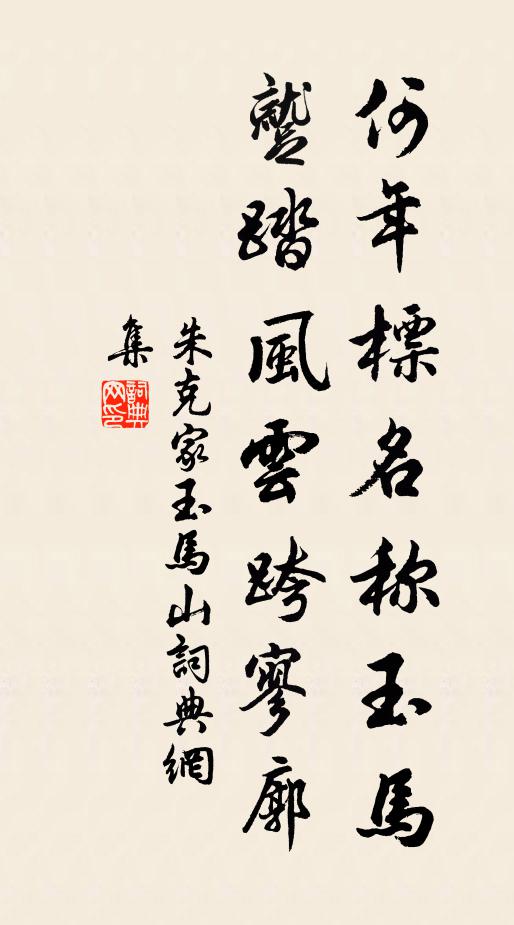 何年標名称玉馬
蹔踏風雲跨寥廓
朱克家玉馬山詞典網
集
詞典网印